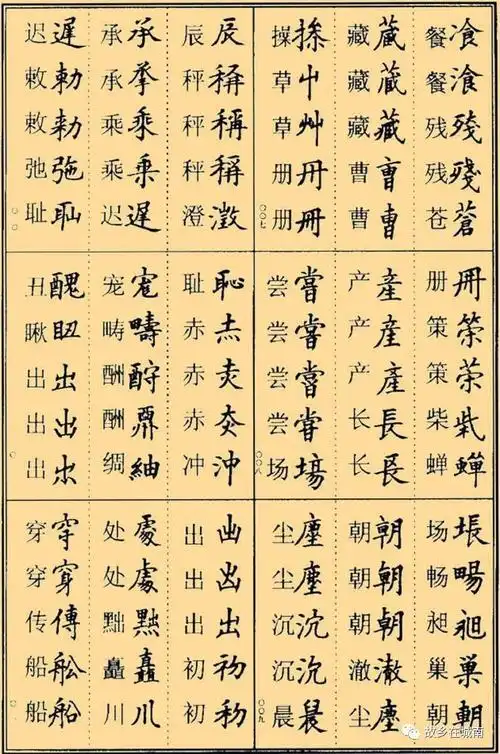 餐飡 餐湌 残残 残殘 苍蒼
藏蔵 藏藏 藏藏 曹曺 曹曹
操 草屮 草艸 册冊 册冊
〇〇七
册冊 策筞 策 柴柴 蝉蟬
产產 产產 产產 长長 长長
尝嘗 尝甞 尝嘗 尝甞 场場
〇〇八
场 畅暢 昶昶 巢巢 朝朝
朝朝 朝朝 朝朝 澈澈 尘塵
尘塵 尘塵 沉沉 沉沉 晨晨
〇〇九
辰辰 秤稱 秤稱 秤稱 澄澂
承承 承承 乘乗 乘乘 迟遲
迟遲 敕勅 敕勑 弛㢮 耻耻
耻恥 赤赤 赤 赤 冲沖
宠寵 畴疇 酬酧 酬 绸紬
丑醜 瞅 出出 出出 出
出 出 出出 初初 初
处處 处處 黜黜 矗矗 川川
穿穿 穿穿 传傳 船舩 船船
故乡在城南